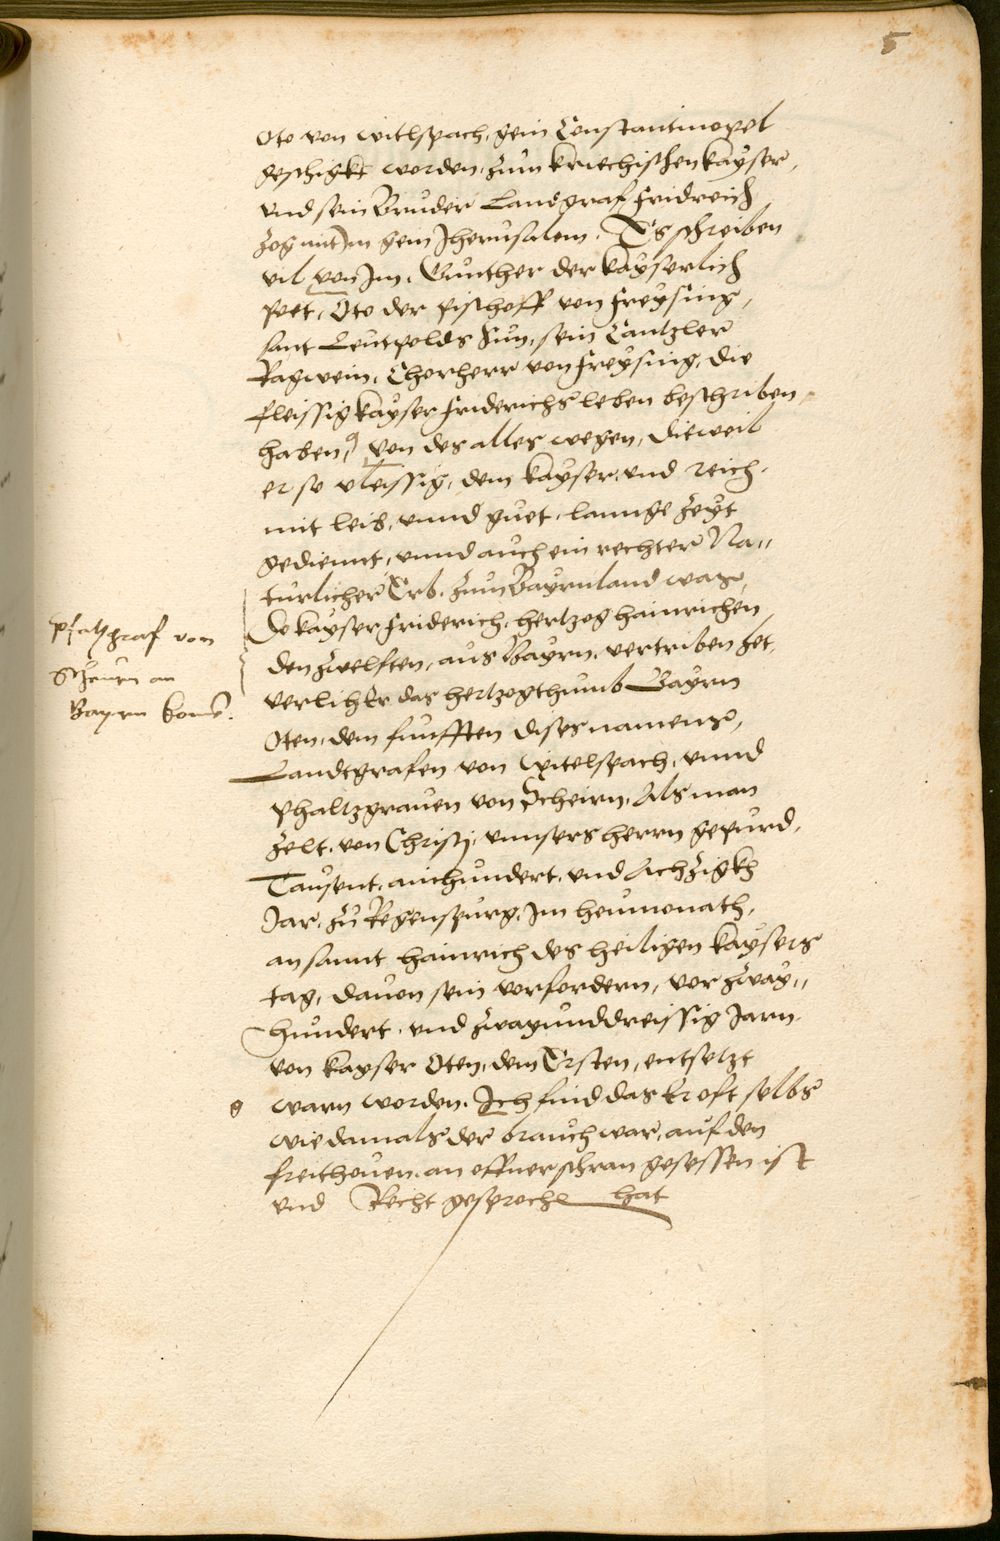 5
Oto von Witlspach, gein Constantinopel
geschigkt worden, zum kriechischen kayser,
vnd sein Bruder Landgraf Fridreich
zog mit Im gein Jherusalem. Es schreiben
vil von Im. Gunther der kayserlich
Poet, Oto der Pischoff von Freysing,
sant Leutpolds Sun, sein Cantzler
Ragwein, Chorherr von Freysing, die
fleissig kayser Friderichs leben beschriben
haben, von des alles wegen, dieweil
er so vleissig, dem kayser, vnd reich,
mit leib, vnnd guet, lannge zeyt
gediennt, vnnd auch ein rechter Na„
turlicher Erb, zum Bayrnland was,
Do kayser Friderich, hertzog hainrichen
den zwelften, aus Bayrn, vertriben het,
verlih Er das hertzogthumb Bayrn
Pfaltzgraf von
Scheurn an
Bayrn kome.
Oten, dem funfften dises namens,
Landtgrafen von Witelspach, vnnd
Phaltzgrauen von Scheirn, Als man
zelt, von Christj, vnnsers herrn gepurd,
Tausent, ainhundert, vnd Achzigkh
Jar, zu Regenspurg, Im heumonath,
an sannt hainrich des heiligen kaysers
tag, dauon sein vorfordern, vor zway„
hundert, vnd zwayunddreissig Jarn
von kayser Oten, dem Ersten, entsetzt
warn worden. Ich find das Er oft selbs
wie damals der brauch war, auf den
freithouen, an offner schran gesessen ist
vnd Recht gesproche hat